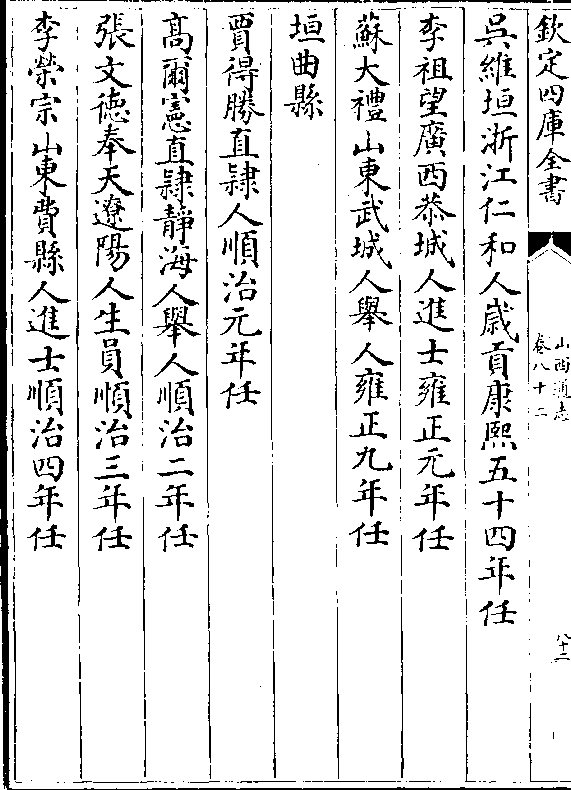 欽定四庫全書
山西通志
卷八十二
八十二
吳維垣浙江仁和人歲貢康熙五十四年任
李祖望廣西恭城人進士雍正元年任
蘇大禮山東武城人舉人雍正九年任
垣曲縣
賈得勝直隸人順治元年任
高爾憲直隸靜海人舉人順治二年任
張文德奉天遼陽人生員順治三年任
李榮宗山東費縣人進士順治四年任